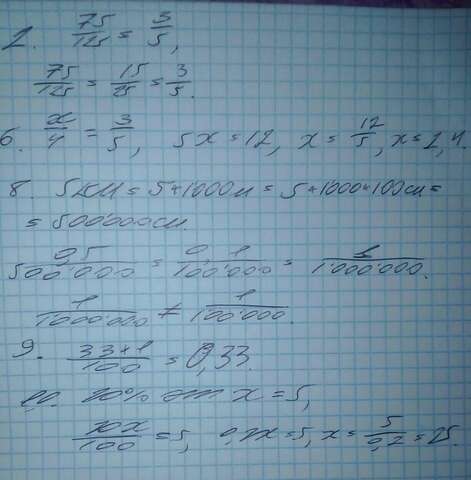 2. 75/125 = 3/5,
75/125 = 15/25 = 3/5.
6. x/4 = 3/5, 5x = 12, x = 12/5, x = 2,4.
8. 5км = 5*1000м = 5*1000*100см =
= 500000см.
0,5/500'000 = 0,1/100'000 = 1/1'000'000.
1/1000'000 ≠ 1/100'000.
9. 33*1/100 = 0,33.
10. 20% от x = 5,
20x/100 = 5, 0,2x = 5, x = 5/0,2 = 25.